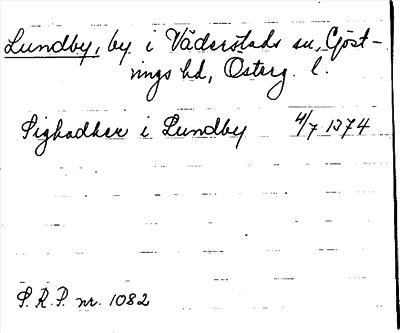 Lundby, by i Väderstads sn, Göst-
rings hd, Österg. l.
Sighadher i Lundby 4/7 1374
S.R.P. nr. 1082